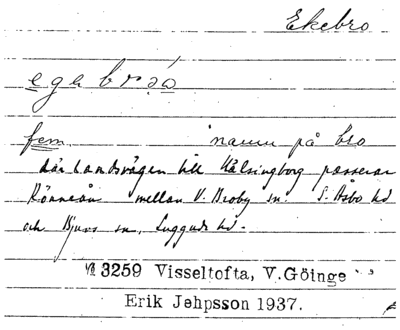 Ekebro
egabroa
fem. namn på bro
där landsvägen till Hälsingborg passerar
Rönneån mellan V. Broby sn. S. Åsbo hd
och Bjuvs sn, Luggude hd.
3259 Visseltofta, V.Göinge
Erik Jehpsson 1937.